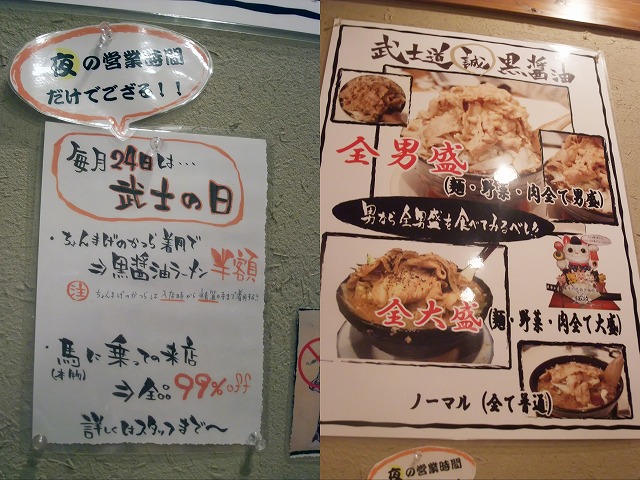 夜の営業時間
だけでござる!!
毎月24日は…
武士の日
・ちょんまげのかつら着用で
⇒黒醤油ラーメン半額
注 ちょんまげのかつらは
・馬に乗っての来店
(本物)
⇒全品99%off
詳しくはスタッフまで〜
武士道 誠 黒醤油
全男盛
(麺・野菜・肉全て男盛)
男なら全男盛を食べてみるべし!
全大盛(麺・野菜・肉全て大盛)
ノーマル(全て普通)
夜の営業時間